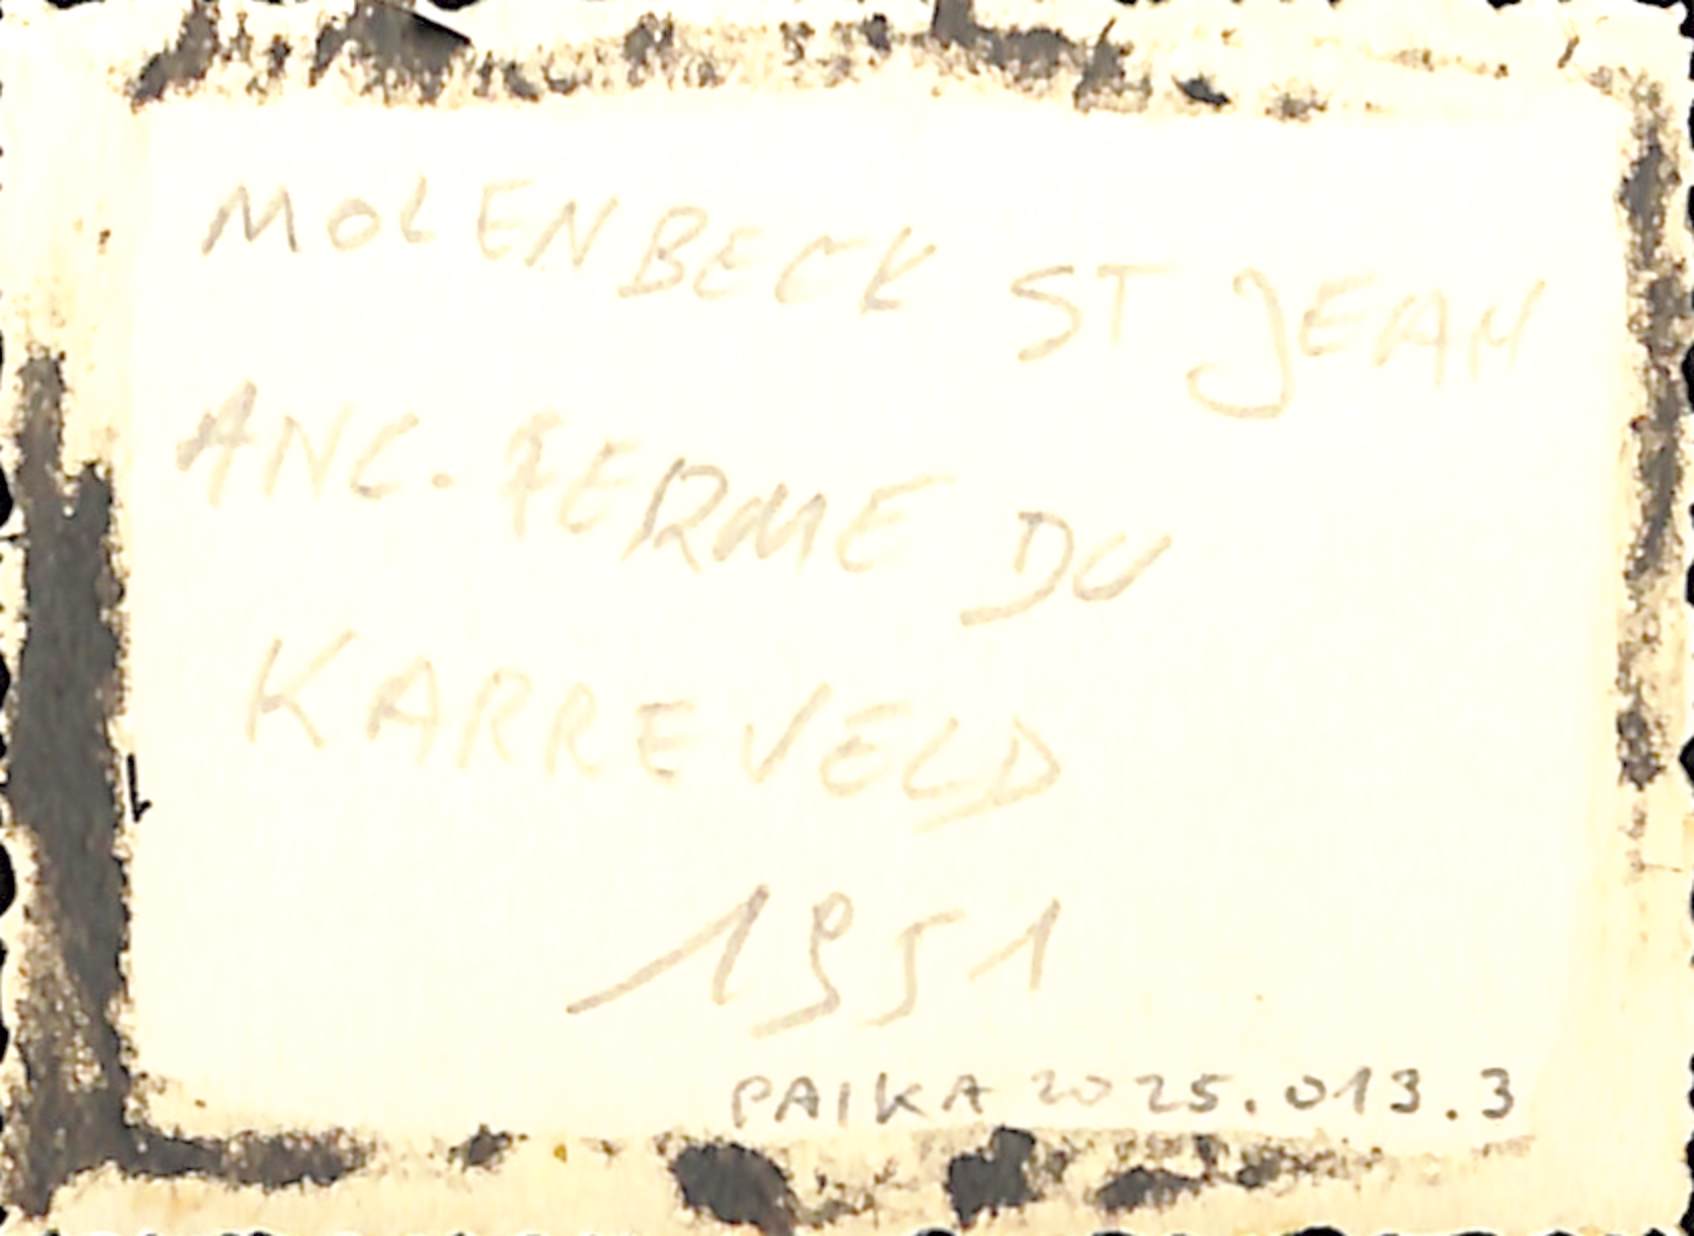 MOLENBECK ST JEAN
ANC. FERME DU
KARREVELD
1951
PAIKA 2025.013.3